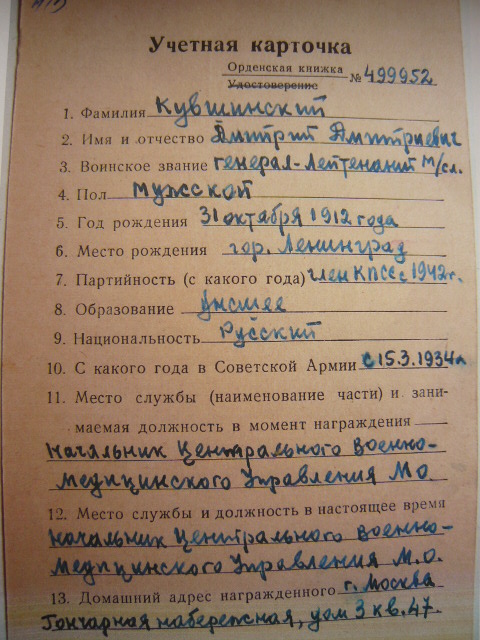 Учетная карточка
Орденская книжка
Удостоверение № 499952
1. Фамилия Кувшинский
2. Имя и отчество Дмитрий Дмитриевич
3. Воинское звание генерал-лейтенант м/сл.
4. Пол мужской
5. Год рождения 31 октября 1912 года
6. Место рождения гор. Ленинград
7. Партийность (с какого года) член КПСС с 1942 г.
8. Образование высшее
9. Национальность Русский
10. С какого года в Советской Армии с 15.3.1934
11. Место службы (наименование части) и зани-
маемая должность в момент награждения
Начальник Центрального Военно-
медицинского Управления МО.
12. Место службы и должность в настоящее время
Начальник Центрального Военно-
медицинского Управления М.О.
13. Домашний адрес награжденного г. Москва
Гончарная набережная, дом 3 кв. 47.